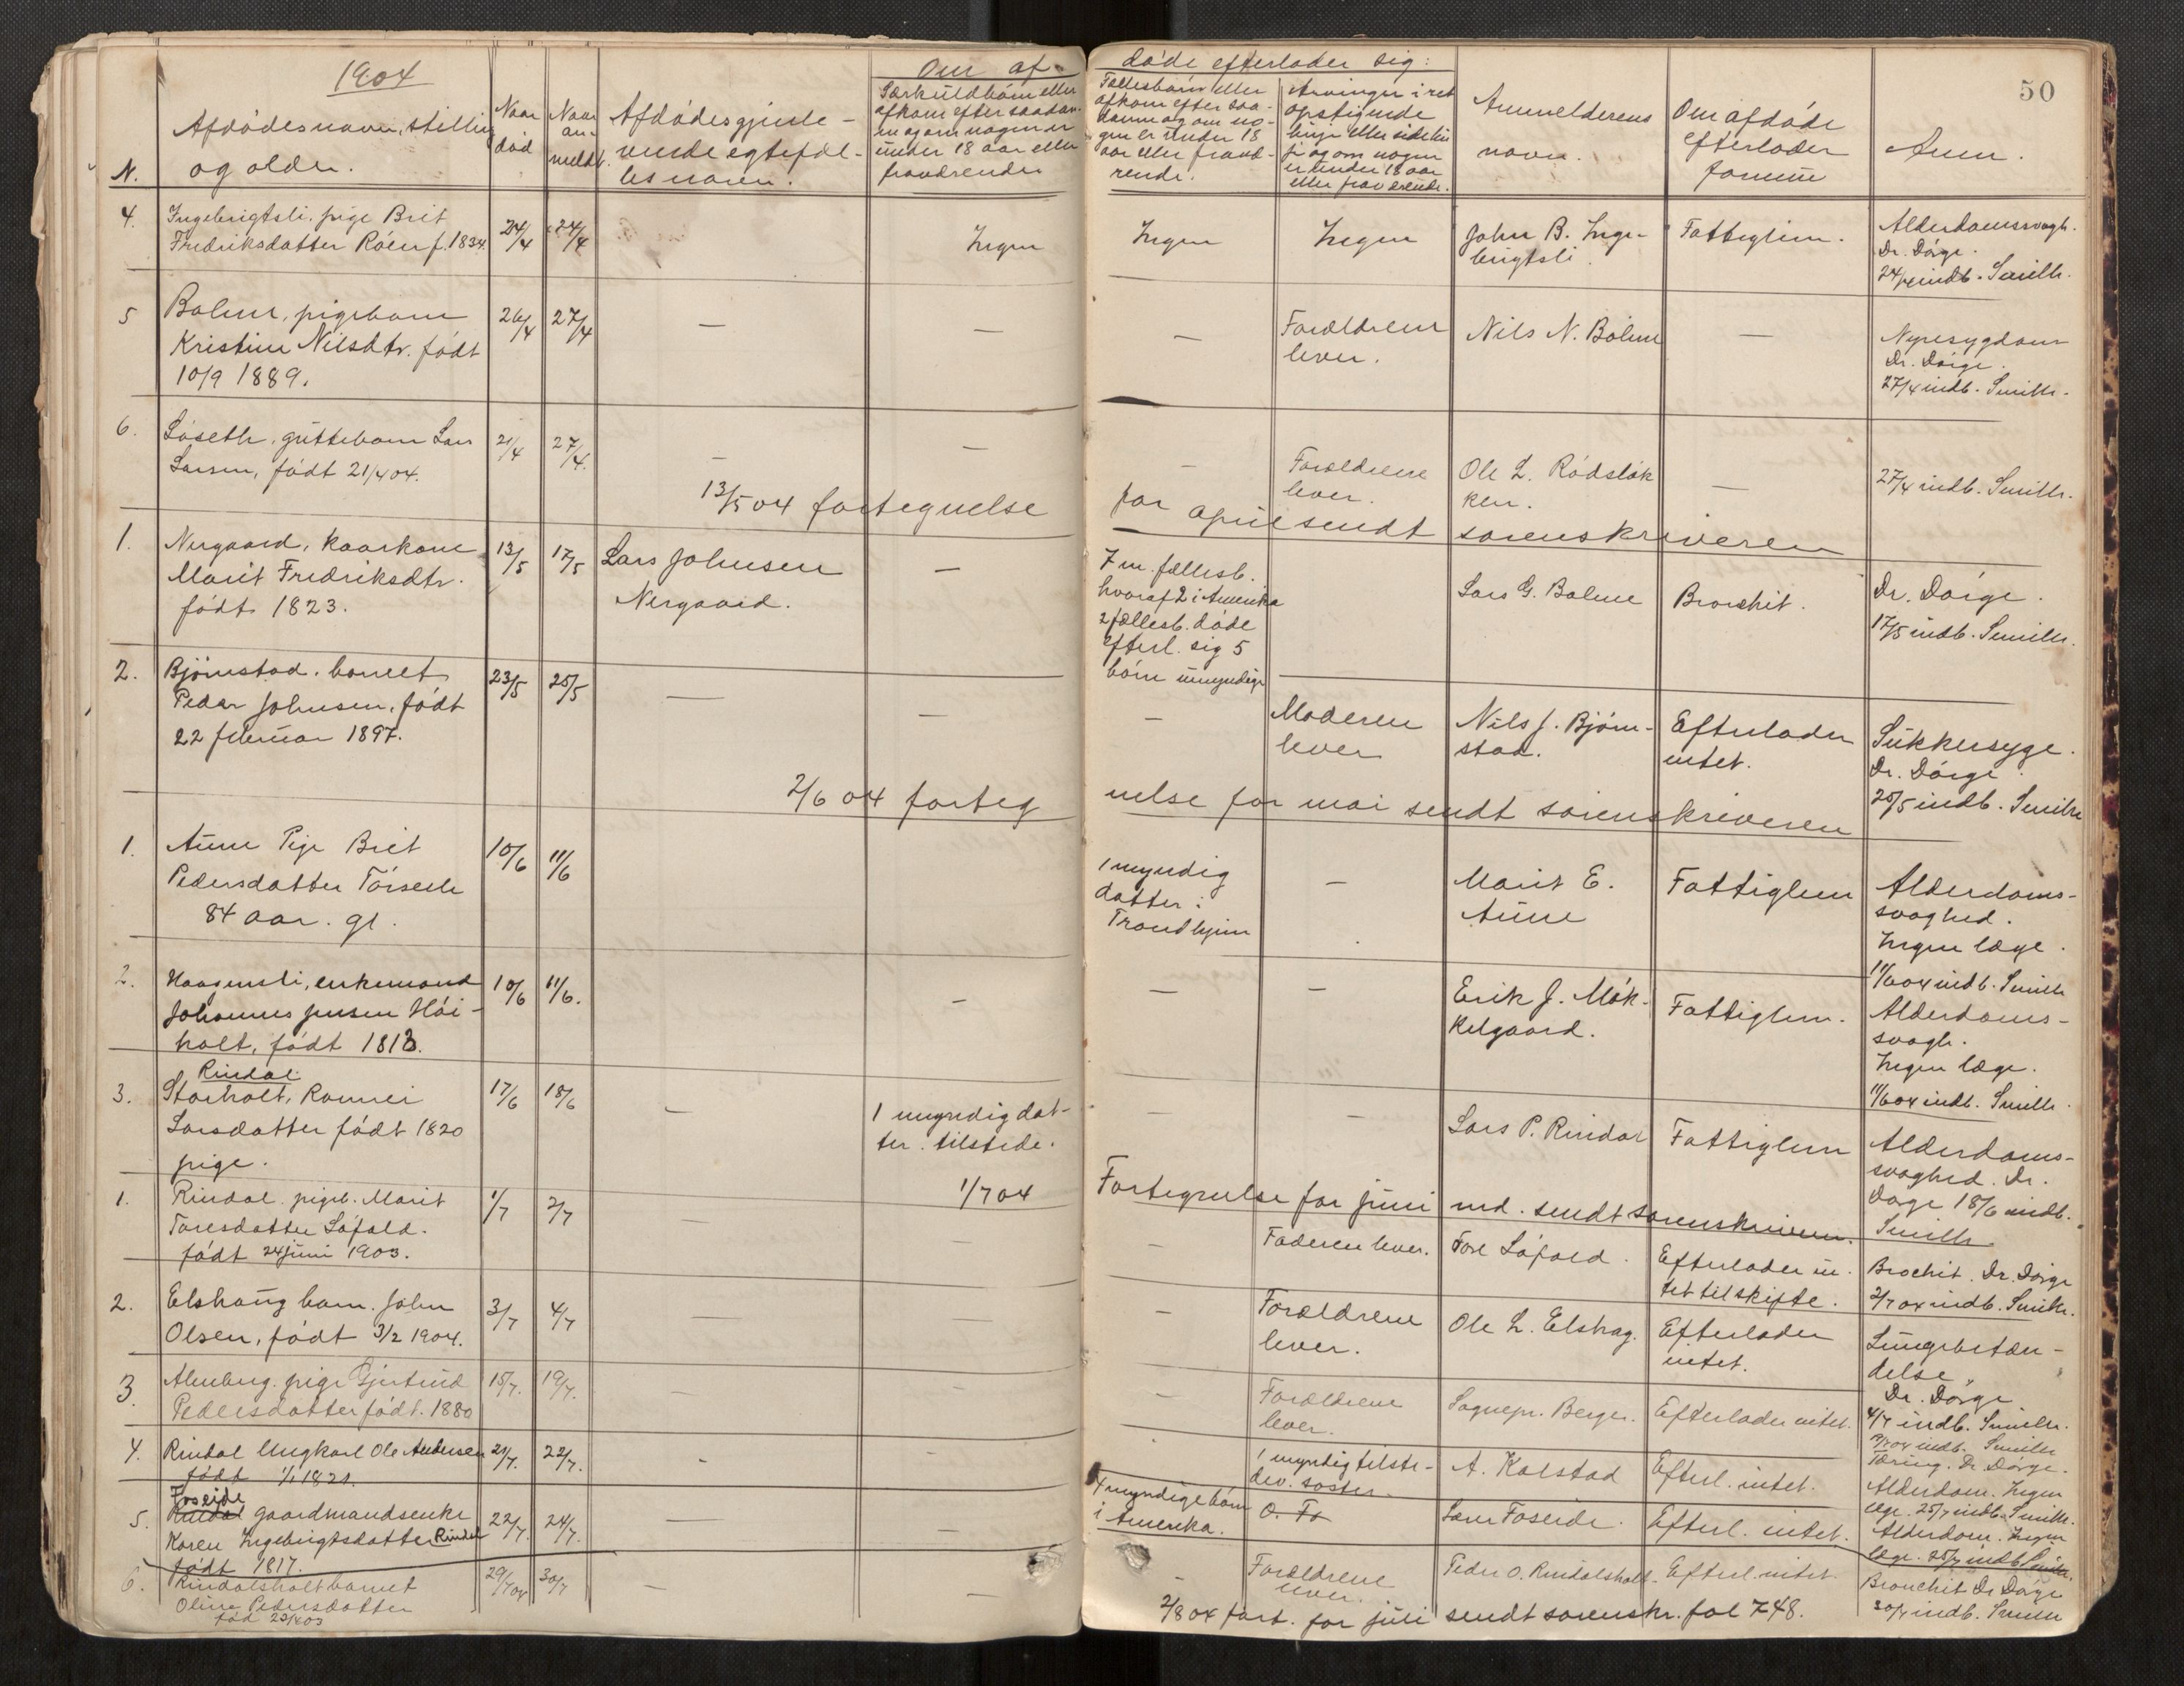 1904
50
N.
Afdødes navn, stilling
og alder.
Naar
død
Naar
an-
meldt.
Afdødes gjenle-
vende egtefæl-
les navn.
Om af-
døde efterlader sig:
Særkuldbørn eller
afkom efter saadan-
ne og om nogen er
under 18 aar eller
fraværende
Fællesbørn eller
afkom efter saa-
danne og om no-
gen er under 18
aar eller fravæ-
rende.
Arvinger i ret
opstigende
linje eller sidelin
je og om nogen
er under 18 aar
eller fraværende.
Anmelderens
navn.
Om afdøde
efterlader
formue
Anm.
4.
Ingebrigtsli, pige Brit
Fredriksdatter Røen f. 1834.
24/4
24/4
Ingen
Ingen
Ingen
John B. Inge-
brigtsli.
Fattiglem.
Alderdomssvagh.
Dr. Dørge.
24/4 indb. Smith.
5
Bolme, pigebarn
Kristine Nilsdtr. født
10/9 1889.
26/4
27/4
—
—
—
Forældrene
lever.
Nils N. Bolme
—
Nyresygdom
Dr. Dørge.
27/4 indb. Smith.
6.
Løseth, guttebarn Lars
Larsen, født 21/4 04.
21/4
27/4.
—
—
—
Forældrene
lever.
Ole L. Rødsløk
ken.
—
27/4 indb. Smith.
13/5 04 fortegnelse for april sendt sorenskriveren
1.
Nergaard, kaarkone
Marit Fredriksdtr.
født 1823.
13/5
17/5
Lars Johnsen
Nergaard.
—
7 m. fællesb.
hvoraf 2 i Amerika
2 fællesb. døde
efterl. sig 5
børn umyndige
Lars G. Bolme
Bronchit.
Dr. Dørge.
17/5 indb. Smith.
2.
Bjørnstad, barnet
Peder Johnsen, født
22 februar 1897.
23/5
25/5
—
—
—
Moderen
lever
Nils J. Bjørn-
stad.
Efterlader
intet.
Sukkersyge.
Dr. Dørge.
25/5 indb. Smith
2/6 04 forteg nelse for mai sendt sorenskriveren
1.
Aune Pige Brit
Pedersdatter Tørseth
84 aar. gl.
10/6
11/6
1 myndig
datter i
Trondhjem
—
Marit E.
Aune
Fattiglem
Alderdoms-
svaghed.
Ingen læge.
11/6 04 indb. Smith
2.
Haagensli, enkemand
Johannes Jensen Høi-
holt, født 1813.
10/6
11/6.
—
—
—
Erik J. Møk-
kelgaard.
Fattiglem.
Alderdoms-
svagh.
Ingen læge.
11/6 04 indb. Smith.
3.
Rindal
Storholt, Rannei
Larsdatter født 1820
pige.
17/6
18/6
—
1 myndig dat-
ter. tilstede.
—
—
Lars P. Rindal
Fattiglem
Alderdoms-
svaghed. Dr.
Dørge 18/6 indb.
Smith
1/7 04 Fortegnelse for juni md. sendt sorenskriveren.
1.
Rindal. pigeb. Marit
Toresdatter Løfald.
født 24 juni 1903.
1/7
2/7
—
—
—
Faderen lever.
Tore Løfald.
Efterlader in-
tet til skifte.
Brochit. Dr. Dørge
2/7 04 indb. Smith.
2.
Elshaug barn. John
Olsen, født 3/2 1904.
3/7
4/7
—
—
—
Forældrene
lever.
Ole L. Elshag.
Efterlader
intet.
Lungebetæn-
delse.
Dr. Dørge
4/7 indb. Smith.
3
Almberg. pige Gjertrud
Pedersdatter født. 1880
15/7.
19/7.
—
-
—
Forældrene
lever.
Sognepr. Berger.
Efterlader intet.
indb. Smith
Tæring. Dr. Dørge.
4.
Rindal Ungkarl Ole Andersen
født 1/1 1821.
21/7.
22/7.
-
-
1 myndig tilste-
dev. søster.
A. Kalstad
Efterl. intet.
Alderdom. Ingen
læge. 25/7 indb. Smith.
5.
Foseide
Rindal gaardmandsenke
Karen Ingebrigtsdatter Rindal
født 1817.
22/7.
24/7.
-
-
4 myndige børn
i Amerika.
O. Fo
Lars Foseide.
Efterl. intet.
Alderdom. Ingen
læge. 25/7 indb Smith.
6.
Rindalsholt barnet
Oline Pedersdatter
29/7 04
30/7
—
—
-
Forældrene
lever.
Peder O. Rindalsholt.
Efterl. intet.
Bronchit Dr Dørge
30/7 indb. Smith
2/8 04 fort. for juli sendt sorenskr. fol 748.